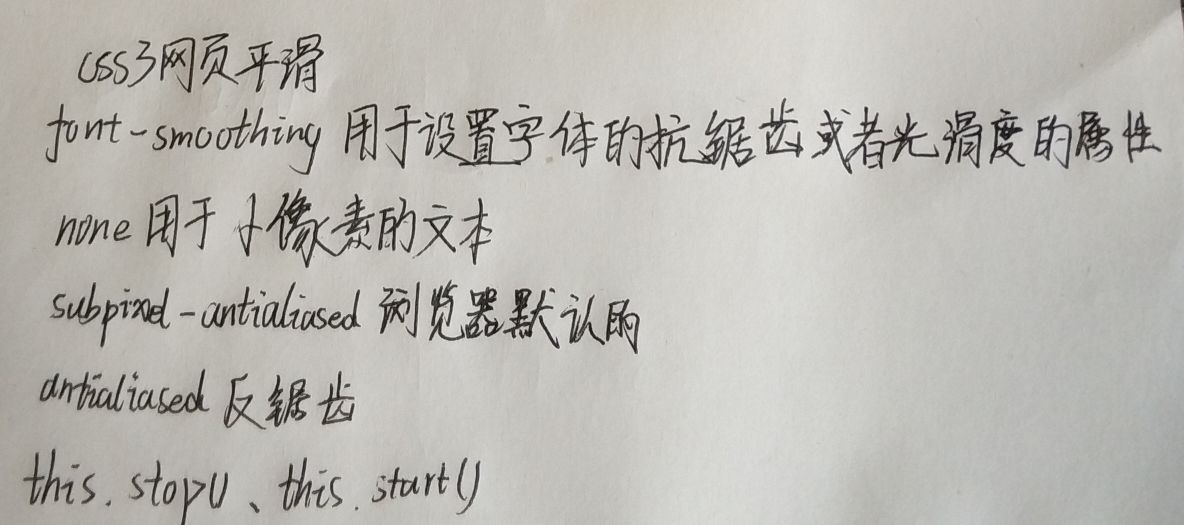 css3网页平滑
font-smoothing 用于设置字体的抗锯齿或者光滑度的属性
none 用于小像素的文本
subpixel-antialiased 浏览器默认的
antialiased 反锯齿
this.stop()、this.start()